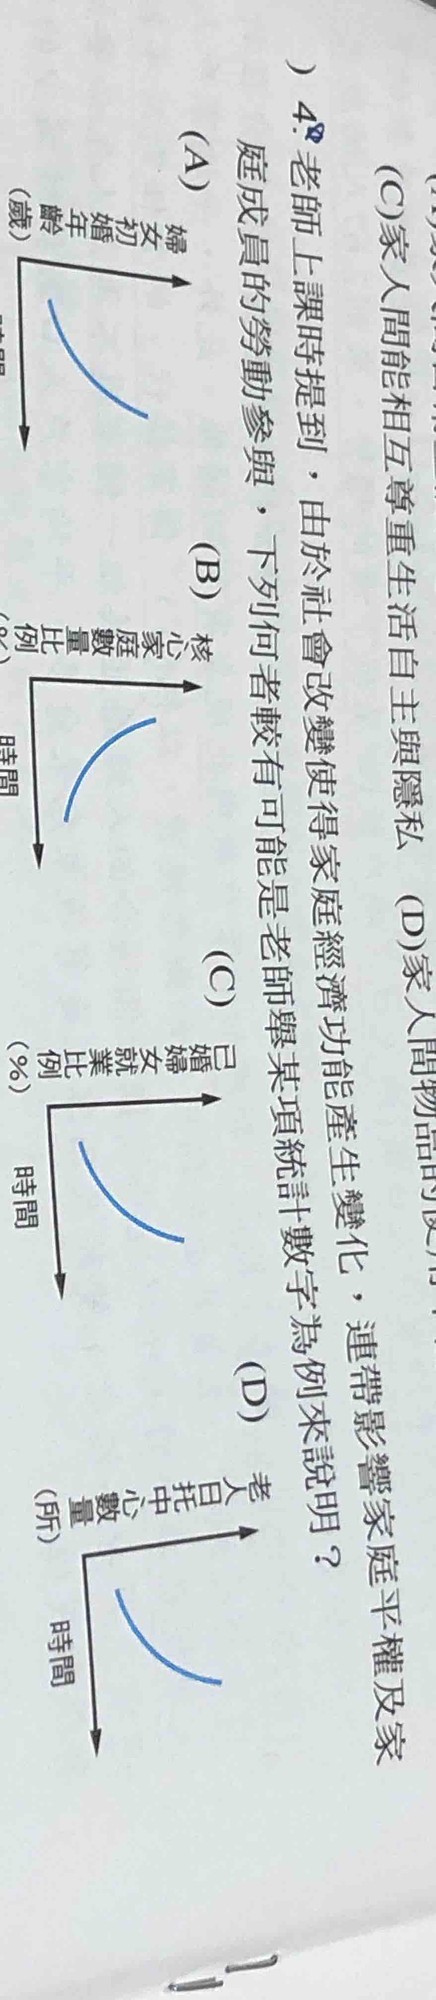 (C)家人間能相互尊重生活自主與隱私 (D)家人間物品的使用
) 4. 老師上課時提到，由於社會改變使得家庭經濟功能產生變化，連帶影響家庭平權及家
庭成員的勞動參與，下列何者較有可能是老師舉某項統計數字為例來說明？
(A) (B) (C) (D)
婦女初婚年齡(歲)
時間
核心家庭數量比例(%)
時間
已婚婦女就業比例(%)
時間
老人日托中心數量(所)
時間